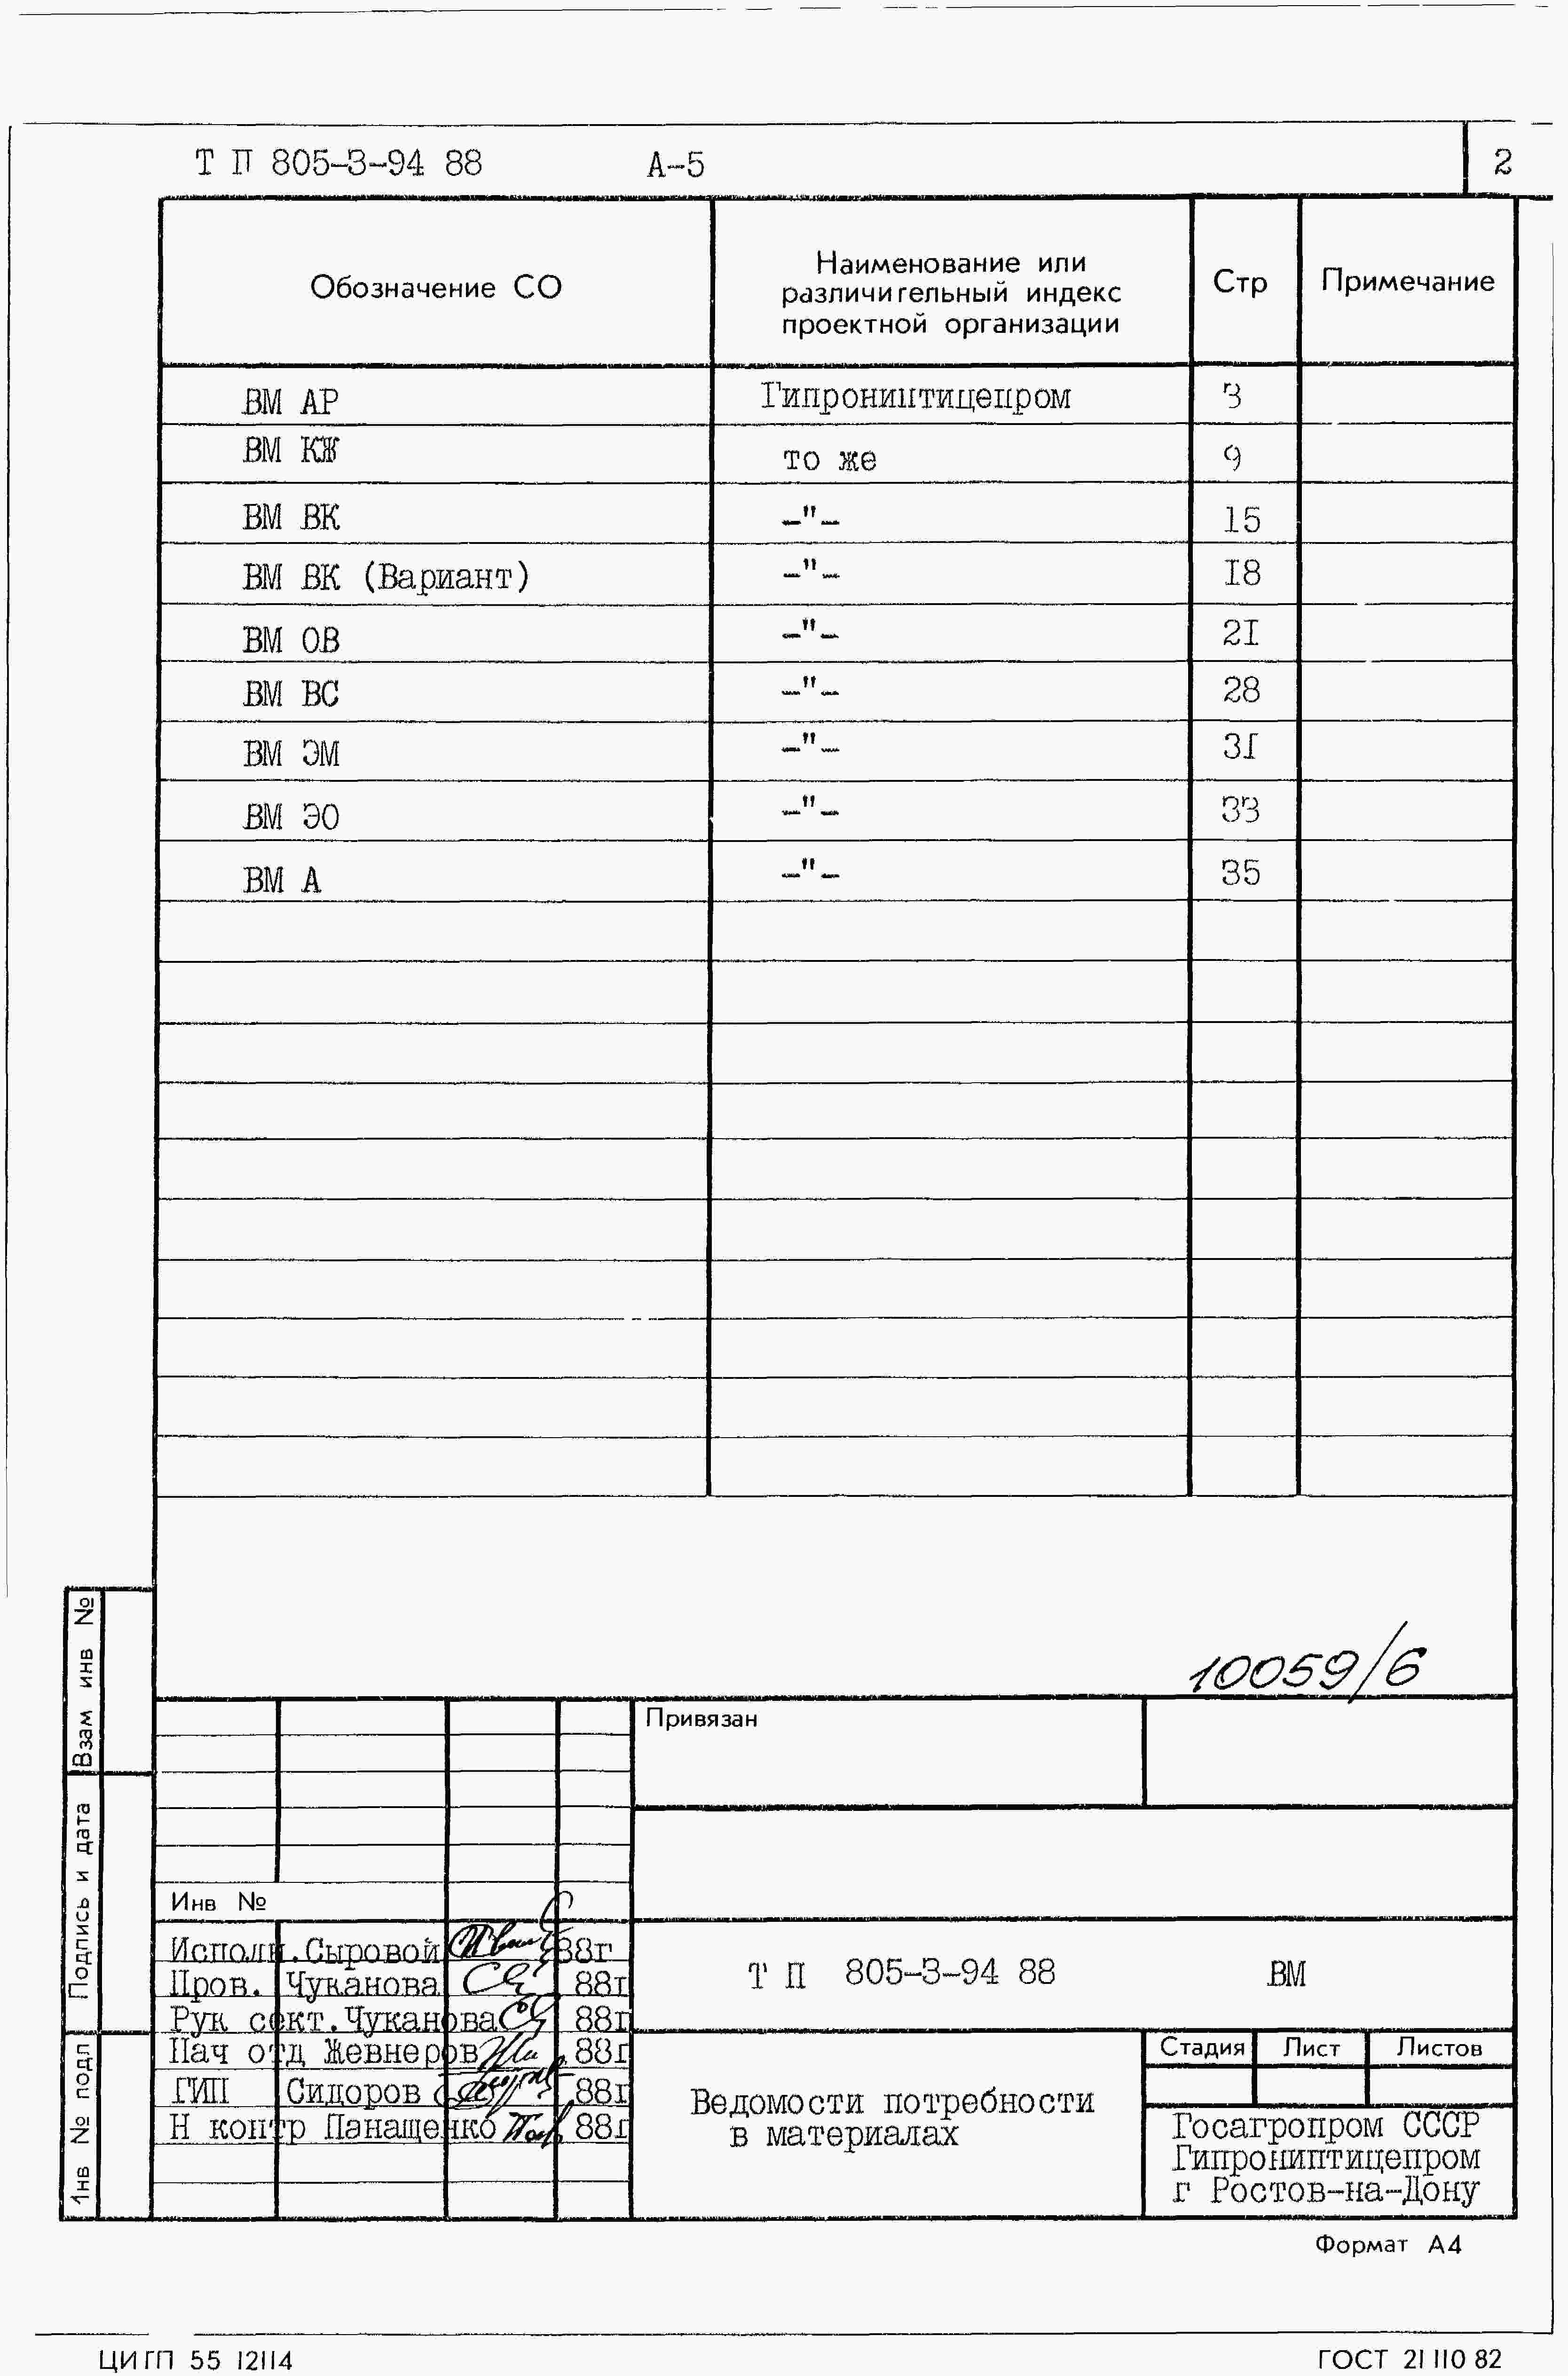 Т П 805-3-94 88 А-5 2
Обозначение СО
Наименование или
различительный индекс
проектной организации
Стр
Примечание
ВМ АР Гипрониптицепром 3
ВМ КЖ то же 9
ВМ ВК -"- 15
ВМ ВК (Вариант) -"- 18
ВМ ОВ -"- 21
ВМ ВС -"- 28
ВМ ЭМ -"- 31
ВМ ЭО -"- 33
ВМ А -"- 35
10059/6
Взам инв №
Подпись и дата
Инв № подл
Привязан
Инв №
Исполн. Сыровой 88г
Пров. Чуканова 88г
Рук сект. Чуканова 88г
Нач отд Жевнеров 88г
ГИП Сидоров 88г
Н контр Панащенко 88г
Т П 805-3-94 88 ВМ
Ведомости потребности
в материалах
Стадия Лист Листов
Госагропром СССР
Гипрониптицепром
г Ростов-на-Дону
Формат А4
ЦИТП 55 12114
ГОСТ 21 110 82